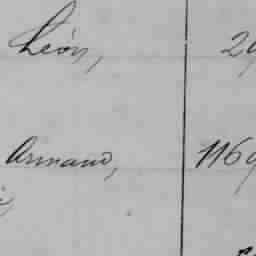 Léon, 29
Armand, 1169